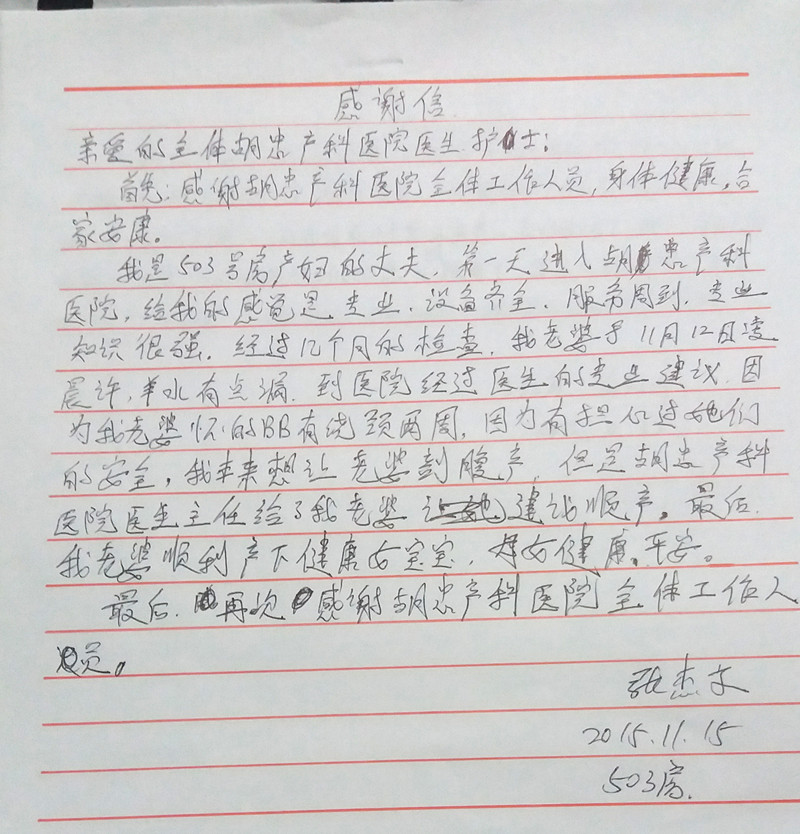 感谢信
亲爱的全体胡忠产科医院医生.护士:
首先:感谢胡忠产科医院全体工作人员,身体健康,合
家安康。
我是503号房产妇的丈夫,第一天进入胡忠产科
医院,给我的感觉是专业,设备齐全,服务周到,专业
知识很强,经过12个月的检查,我老婆于11月12日凌
晨许,羊水有点漏,到医院经过医生的专业建议,因
为我老婆怀的BB有绕颈两周,因为有担心过她们
的安全,我本来想让老婆剖腹产,但是胡忠产科
医院医生主任给了我老婆建议顺产。最后.
我老婆顺利产下健康女宝宝,母女健康,平安。
最后.再次感谢胡忠产科医院全体工作人
员。
张杰文
2015.11.15
503房.